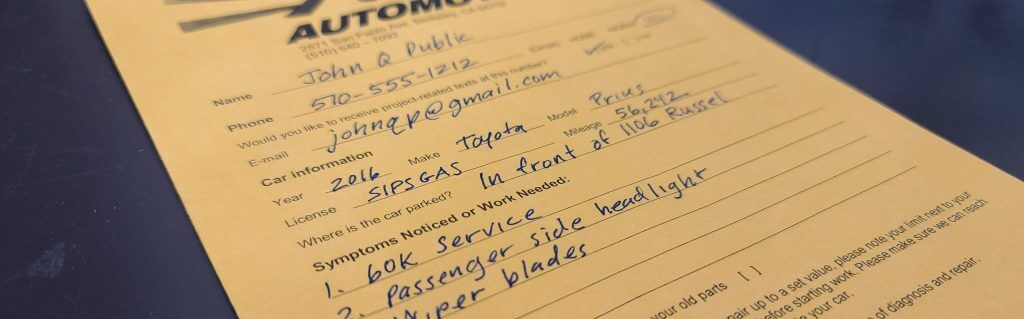 AUTOMO
2871 San Pablo Ave. Berkeley, CA 94702
(510) 540 - 7093
Name John Q Public
Phone 510-555-1212 (Circle) HOME WORK
Would you like to receive project-related texts at this number?
E-mail johnqp@gmail.com
Car Information
Year 2016 Make Toyota Model Prius
License SIPSGAS Mileage 56,292
Where is the car parked? In front of 1106 Russel
Symptoms Noticed or Work Needed:
1. 60K service
2. Passenger side headlight
Wiper blades
your old parts [ ]
pair up to a set value, please note your limit next to your
before starting work. Please make sure we can reach
your car.
of diagnosis and repair.